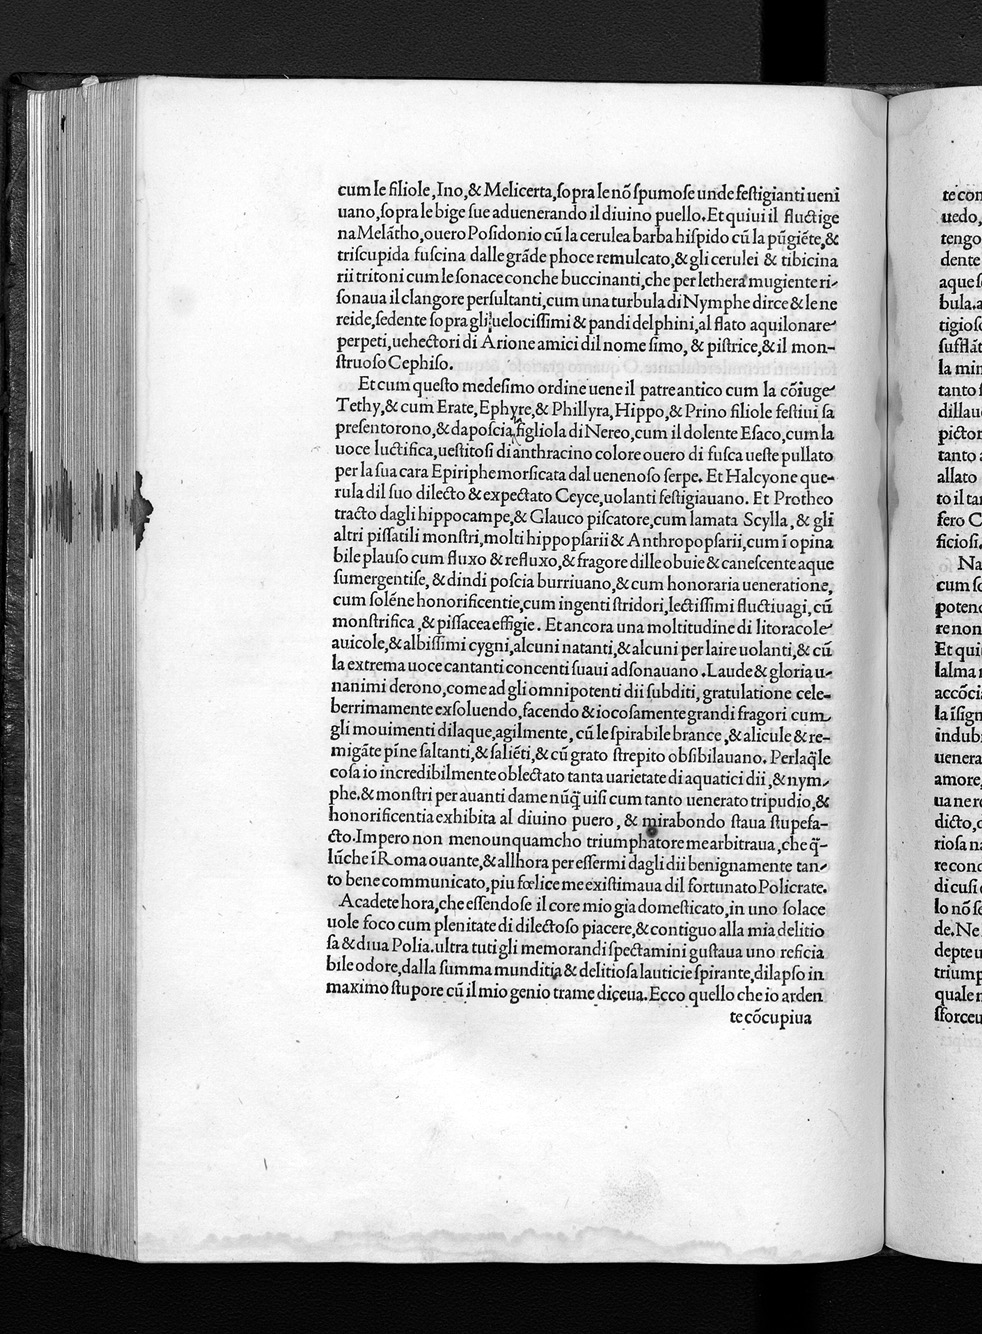 cum le filiole, Ino, & Melicerta, ſopra le nõ ſpumoſe unde feſtigianti ueni
uano, ſopra le bige ſue aduenerando il diuino puello. Et quiui il fluctige
na Melãtho, ouero Poſidonio cũ la cerulea barba hiſpido cũ la pũgiẽte, &
triſcupida fuſcina dalle grãde phoce remulcato, & gli cerulei & tibicina
rii tritoni cum le ſonace conche buccinanti, che per lethera mugiente ri-
ſonaua il clangore perſultanti, cum una turbula di Nymphe dirce & le ne
reide, ſedente ſopra gli uelociſſimi & pandi delphini, al flato aquilonare
perpeti, uehectori di Arione amici dil nome ſimo, & piſtrice, & il mon-
ſtruoſo Cephiſo.
Et cum queſto medeſimo ordine uene il patre antico cum la cõiuge
Tethy, & cum Erate, Ephyre, & Phillyra, Hippo, & Prino filiole feſtiui ſa
preſentorono, & dapoſcia, figliola di Nereo, cum il dolente Eſaco, cum la
uoce luctifica, ueſtitoſi di anthracino colore ouero di fuſca ueſte pullato
per la ſua cara Epiriphe morſicata dal uenenoſo ſerpe. Et Halcyone que-
rula dil ſuo dilecto & expectato Ceyce, uolanti feſtigiauano. Et Protheo
tracto dagli hippocampe, & Glauco piſcatore, cum lamata Scylla, & gli
altri piſſatili monſtri, molti hippopſarii & Anthropopſarii, cum ĩ opina
bile plauſo cum fluxo & refluxo, & fragore dille obuie & caneſcente aque
ſumergentiſe, & dindi poſcia burriuano, & cum honoraria ueneratione,
cum ſolẽne honorificentie, cum ingenti ſtridori, lectiſſimi fluctiuagi, cũ
monſtrifica, & piſſacea effigie. Et ancora una moltitudine di litoracole
auicole, & albiſſimi cygni, alcuni natanti, & alcuni per laire uolanti, & cũ
la extrema uoce cantanti concenti ſuaui adſonauano. Laude & gloria u-
nanimi derono, come ad gli omnipotenti dii ſubditi, gratulatione cele-
berrimamente exſoluendo, facendo & iocoſamente grandi fragori cum
gli mouimenti dilaque, agilmente, cũ le ſpirabile brance, & alicule & re-
migãte pĩne ſaltanti, & ſaliẽti, & cũ grato ſtrepito obſibilauano. Perlaq̃le
coſa io incredibilmente oblectato tanta uarietate di aquatici dii, & nym-
phe. & monſtri per auanti da me nũq̃ uiſi cum tanto uenerato tripudio, &
honorificentia exhibita al diuino puero, & mirabondo ſtaua ſtupefa-
cto. Impero non meno unquamcho triumphatore me arbitraua, che q̃-
lũche ĩ Roma ouante, & allhora per eſſermi dagli dii benignamente tan-
to bene communicato, piu fœlice me exiſtimaua dil fortunato Policrate.
Acadete hora, che eſſendoſe il core mio gia domeſticato, in uno ſolace
uole foco cum plenitate di dilectoſo piacere, & contiguo alla mia delitio
ſa & diua Polia. ultra tuti gli memorandi ſpectamini guſtaua uno reficia
bile odore, dalla ſumma munditia & delitioſa lauticie ſpirante, dilapſo in
maximo ſtupore cũ il mio genio trame diceua. Ecco quello che io arden
te cõcupiua
te con
uedo,
tengo
dente
aque ſe
bula. a
tigioſo
ſufflãt
la min
tanto ſ
dillau
pictor
tanto a
allato
to il tan
fero C
ficioſi.
Na
cum ſo
potenc
re non
Et qui
lalma
accõcia
la ĩſign
indubi
uenera
amore,
ua ne r
dicto, c
rioſa na
re conc
di cuſi
lo nõ ſe
de. Ne
depte u
triump
quale
ſſorceu